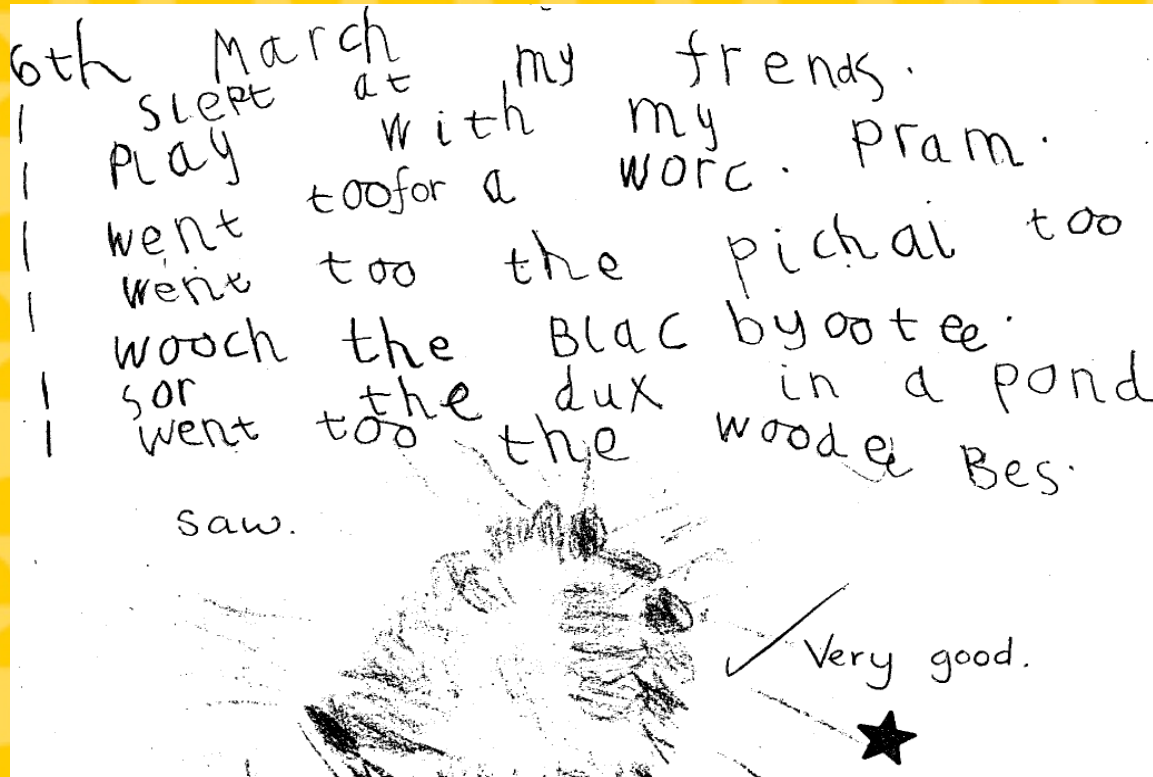 6th March
I slept at my frends.
I play with my pram.
I went too for a worc.
I went too the pichai too
wooch the Blac byootee.
I sor the dux in a pond
I went too the woodee Bes.
saw.
Very good.